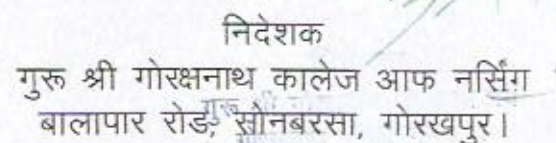 निदेशक
गुरू श्री गोरक्षनाथ कालेज आफ नर्सिंग
बालापार रोड, सोनबरसा, गोरखपुर।